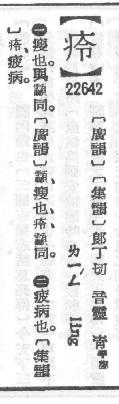 【㾉】
22642
〔廣韻〕〔集韻〕郎丁切 音靈 青平聲
ㄌㄧㄥˊ ling
㊀瘦也。與䉁同。〔廣韻〕瘦也、㾉同。㊁疲病也。〔集韻
〕㾉、疲病。